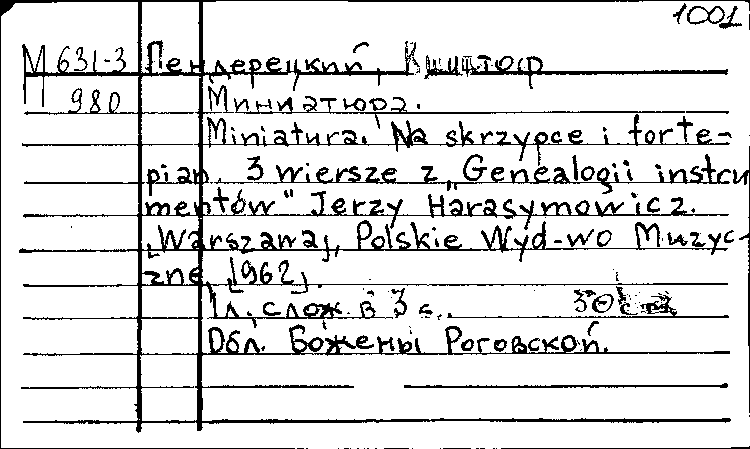 1001
М 631-3 Пендерецкий, Кшиштоф
П 980 Миниатюра.
Miniatura. Na skrzypce i forte-
pian. 3 wiersze z „Genealogii instru
mentów" Jerzy Harasymowicz.
[Warszawa], Polskie Wyd-wo Muzyc-
zne, [1962].
1л., слож. в 3 с. 30
Обл. Божены Роговской.